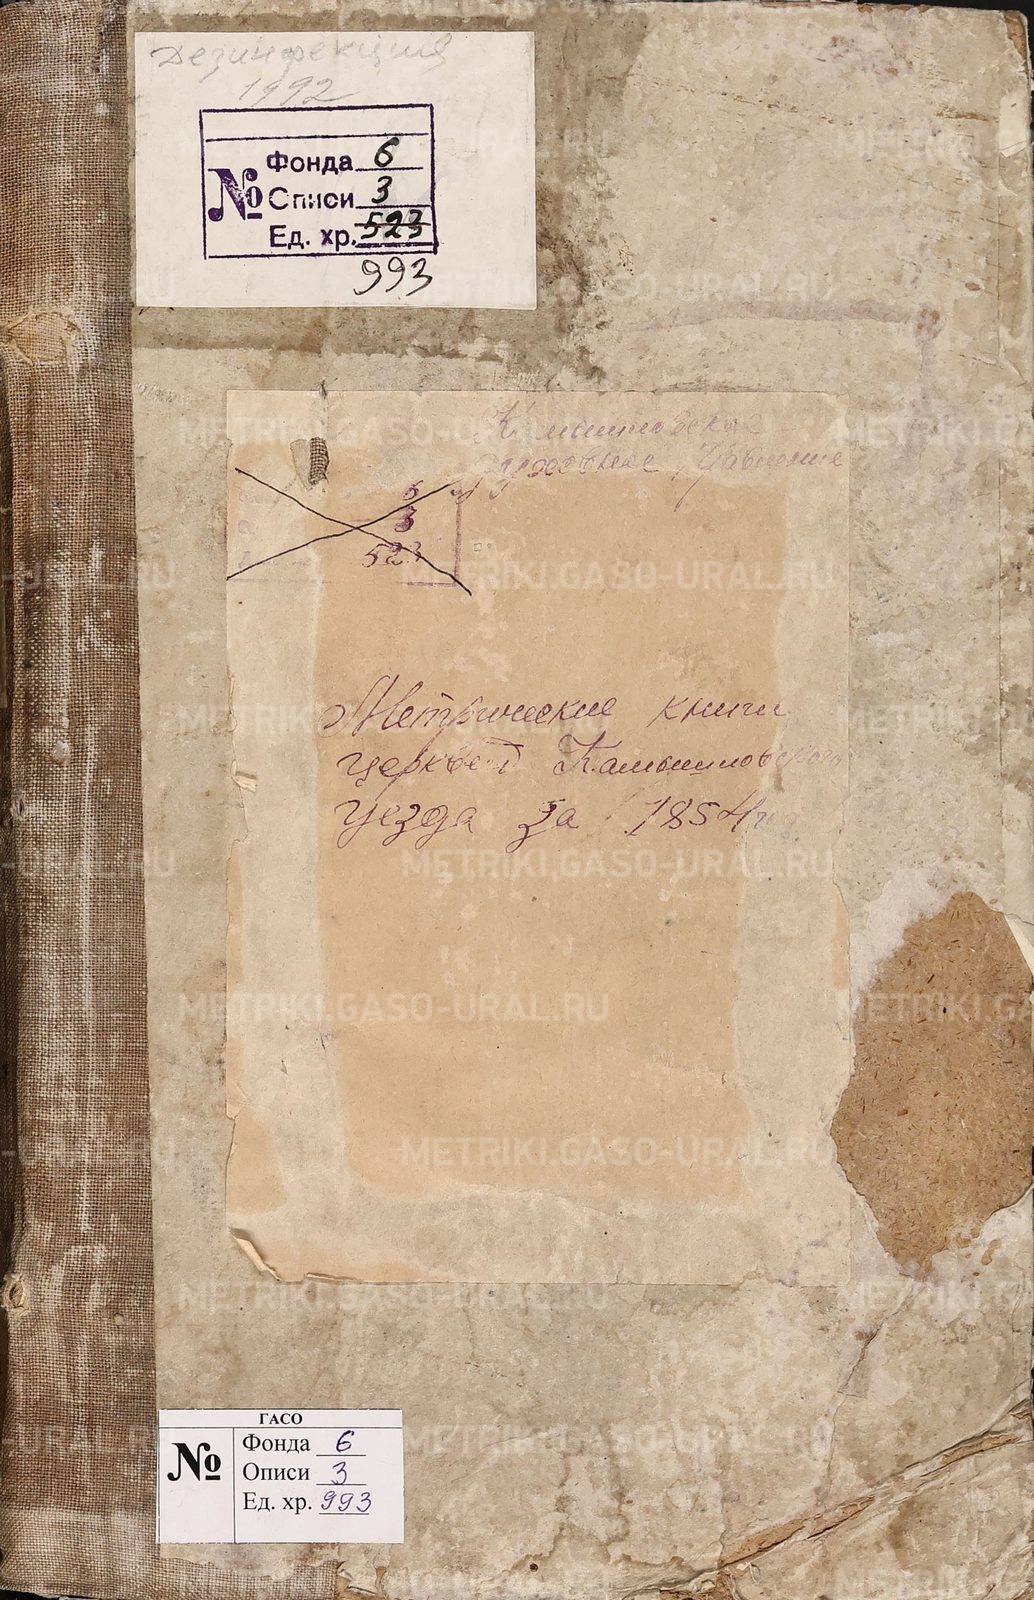 Дезинфекция
1992
№
Фонда 6
Списи 3
Ед. хр. 523
993
Камышловское
духовное Правление
6
3
523
Метрические книги
церквей Камышловского
уезда за 1854 г
ГАСО
№
Фонда 6
Описи 3
Ед. хр. 993
METRIKI.GASO-URAL.RU